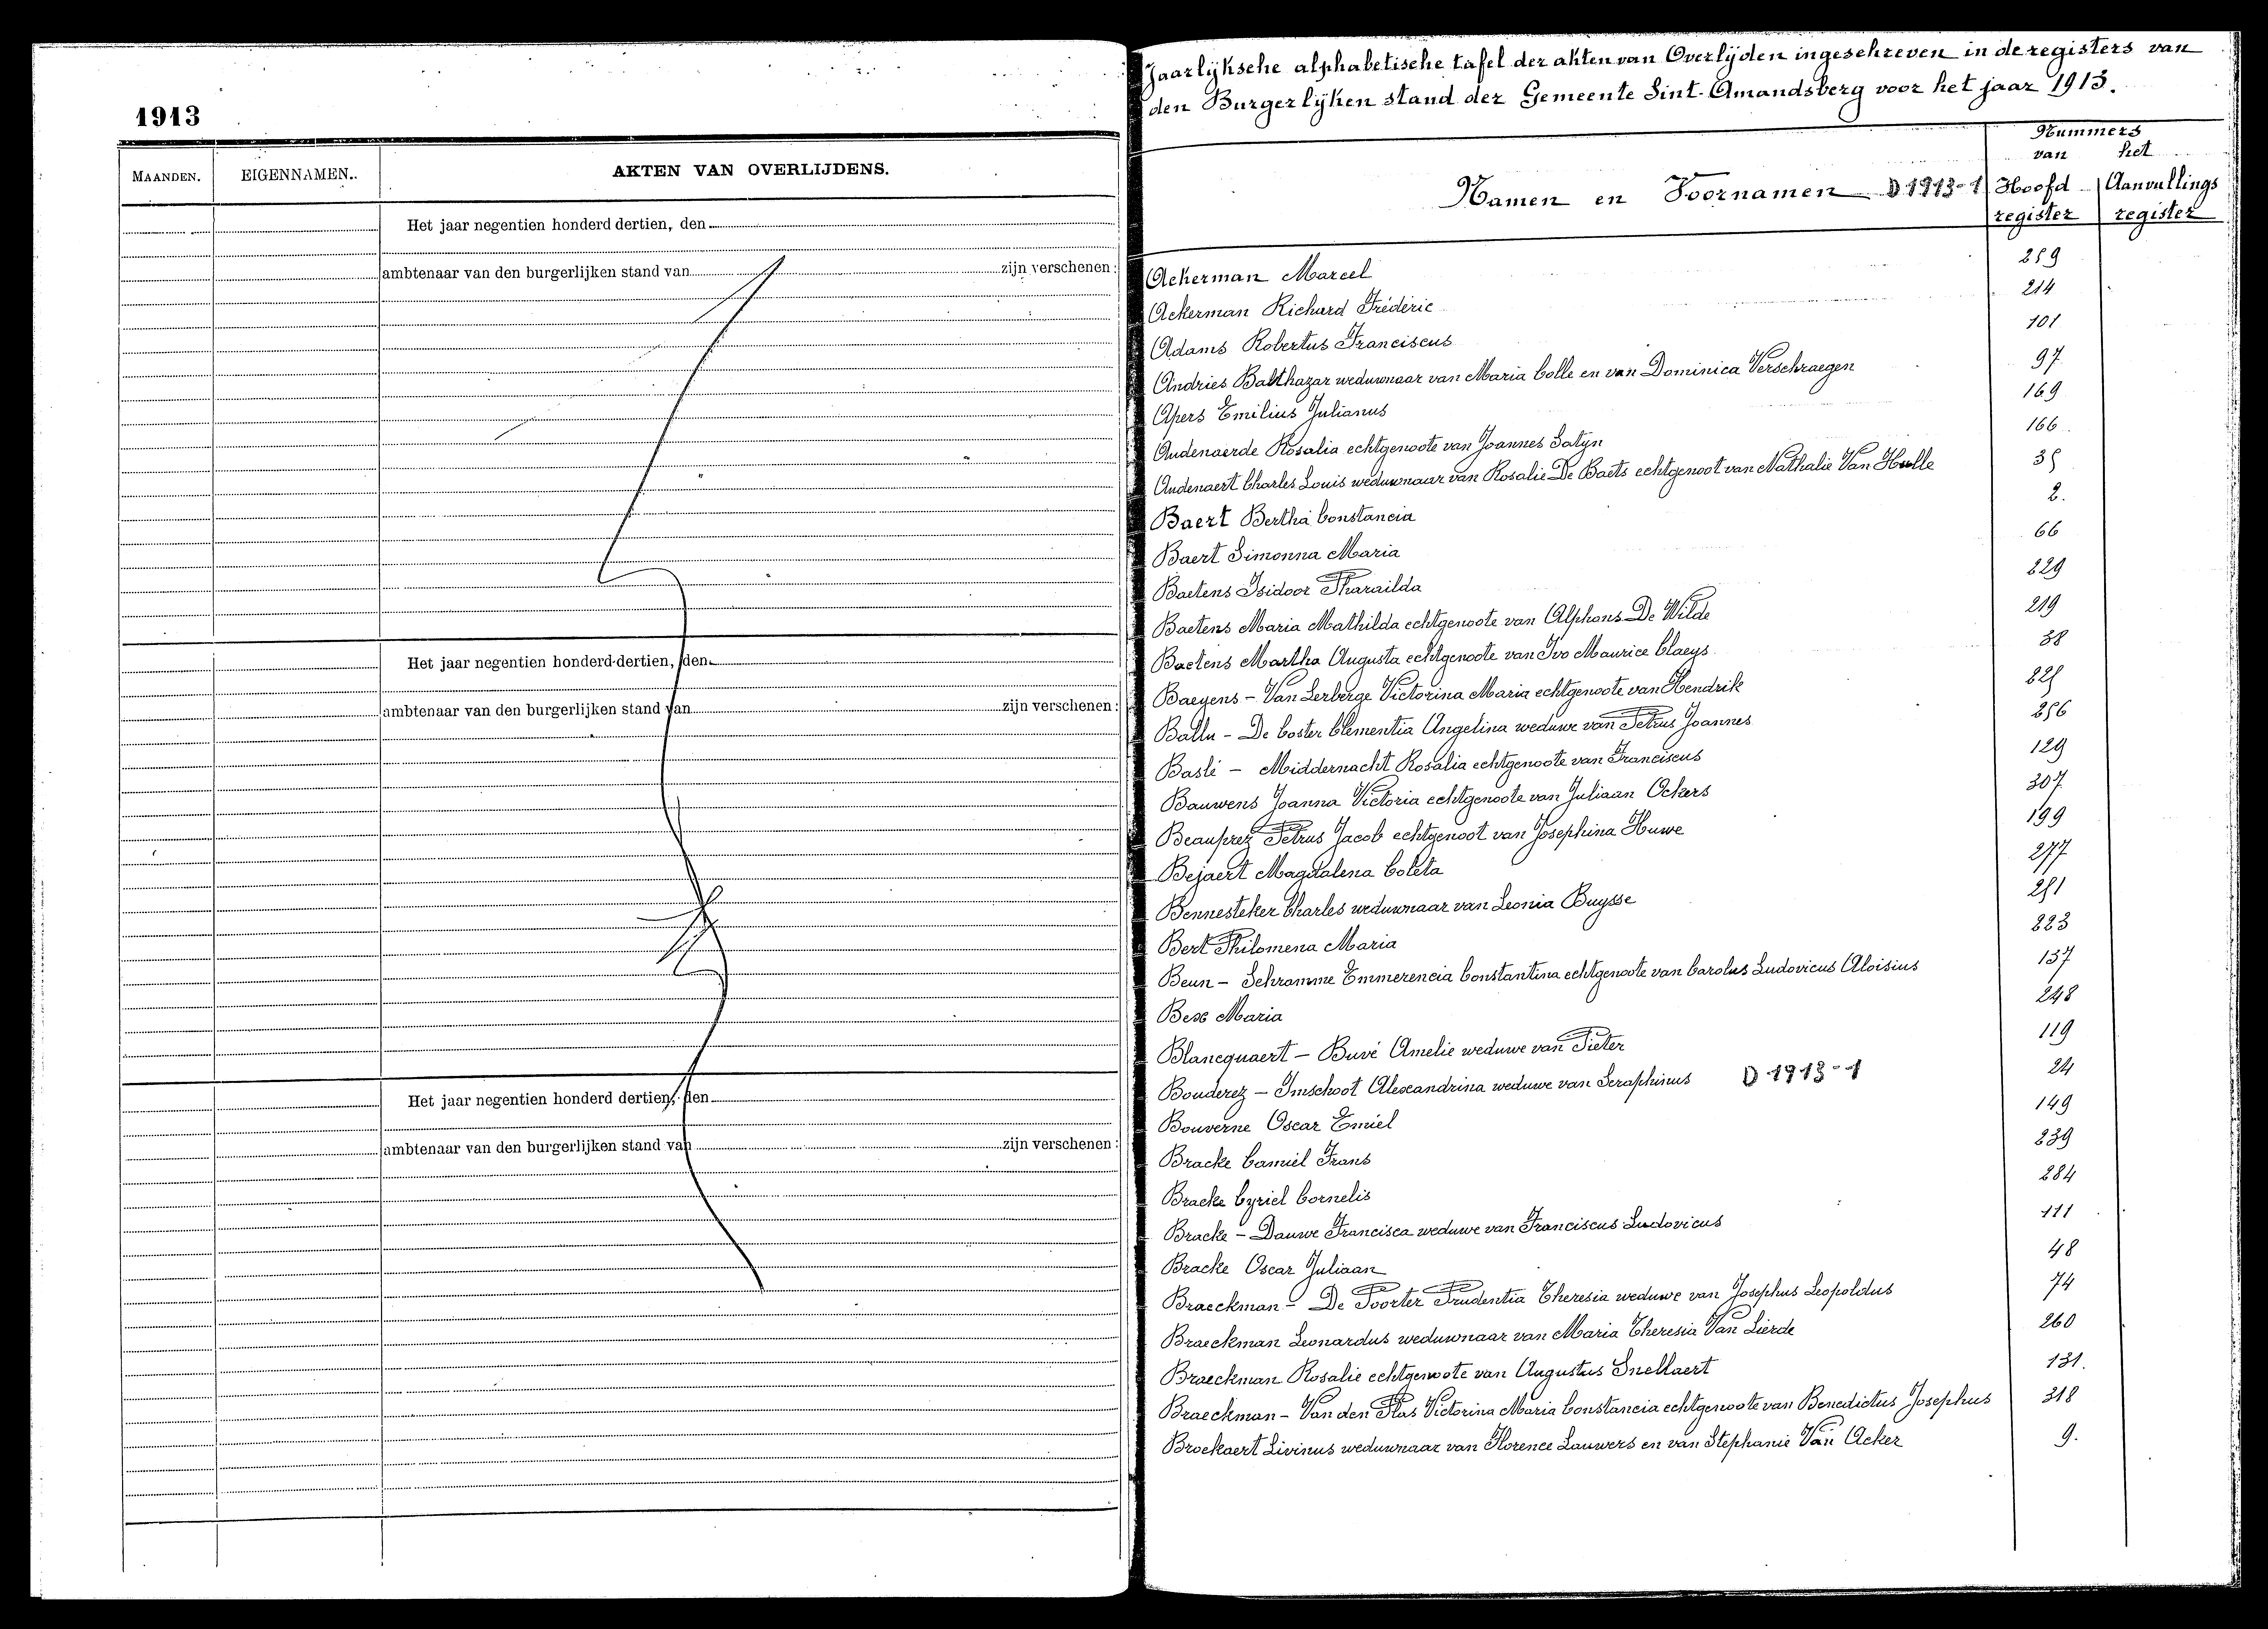 1913
MAANDEN. EIGENNAMEN. AKTEN VAN OVERLIJDENS.
Het jaar negentien honderd dertien, den
ambtenaar van den burgerlijken stand van zijn verschenen:
Het jaar negentien honderd dertien, den
ambtenaar van den burgerlijken stand van zijn verschenen:
Het jaar negentien honderd dertien, den
ambtenaar van den burgerlijken stand van zijn verschenen:
Jaarlijksche alphabetische tafel der akten van Overlijden ingeschreven in de registers van
den Burgerlijken stand der Gemeente Sint-Amandsberg voor het jaar 1913.
Namen en Voornamen D 1913-1 Nummers van het Hoofd register Aanvullings register
Ackerman Marcel 259
Ackerman Richard Fréderic 214
Adams Robertus Franciscus 101
Andries Balthazar weduwnaar van Maria Colle en van Dominica Verschraegen 97
Apers Emilius Julianus 169
Audenaerde Rosalia echtgenoote van Joannes Satyn 166
Audenaert Charles Louis weduwnaar van Rosalie De Baets echtgenoot van Nathalie Van Hulle 35
Baert Bertha Constancia 2.
Baert Simonna Maria 66
Baetens Isidoor Pharaïlda 229
Baetens Maria Mathilda echtgenoote van Alphons De Wilde 219
Baetens Martha Augusta echtgenoote van Ivo Maurice Claeys 38
Baeyens - Van Lerberge Victorina Maria echtgenoote van Hendrik 225
Ballu - De Coster Clementia Angelina weduwe van Petrus Joannes 256
Baslé - Middernacht Rosalia echtgenoote van Franciscus 129
Bauwens Joanna Victoria echtgenoote van Juliaan Ockers 307
Beauprez Petrus Jacob echtgenoot van Josephina Huwe 199
Bejaert Magdalena Coleta 277
Bennesteker Charles weduwnaar van Leonia Buysse 251
Bert Philomena Maria 223
Beun - Schramme Emmerencia Constantina echtgenoote van Carolus Ludovicus Aloisius 137
Bex Maria 248
Blancquaert - Buvé Amelie weduwe van Pieter 119
Bouderez - Imschoot Alexandrina weduwe van Seraphinus D 1913-1 24
Bouverne Oscar Emiel 149
Bracke Camiel Frans 239
Bracke Cyriel Cornelis 284
Bracke - Dauwe Francisca weduwe van Franciscus Ludovicus 111
Bracke Oscar Juliaan 48
Braeckman - De Poorter Prudentia Theresia weduwe van Josephus Leopoldus 74
Braeckman Leonardus weduwnaar van Maria Theresia Van Lierde 260
Braeckman Rosalie echtgenoote van Augustus Snellaert 131.
Braeckman - Van den Plas Victorina Maria Constancia echtgenoote van Benedictus Josephus 318
Broekaert Livinus weduwnaar van Florence Lauwers en van Stephanie Van Acker 9.